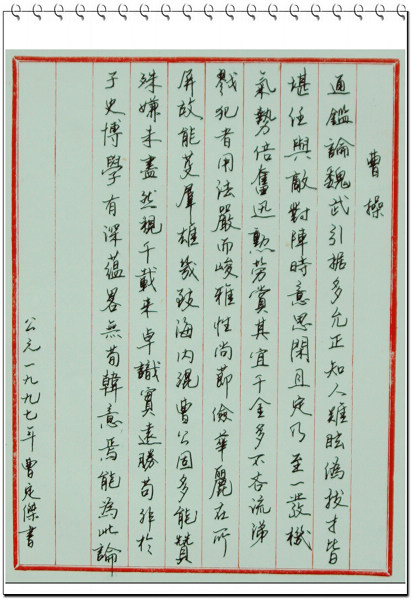 曹操
通鑑論魏武引据多允正知人難眩偽拔才皆
堪任與敵對陣時意思閑且定乃至一發機
氣勢倍奮迅勲勞賞其宜千金多不吝流涕
戮犯者用法嚴而峻雅性尚節儉華麗在所
屏故能芟羣雄幾致海内混曹公固多能贊
殊嫌未盡然視千載来卓識實遠勝苟非於
子史博學有深蘊畧無荀韓意焉能為此論
公元一九九七年曹定傑書